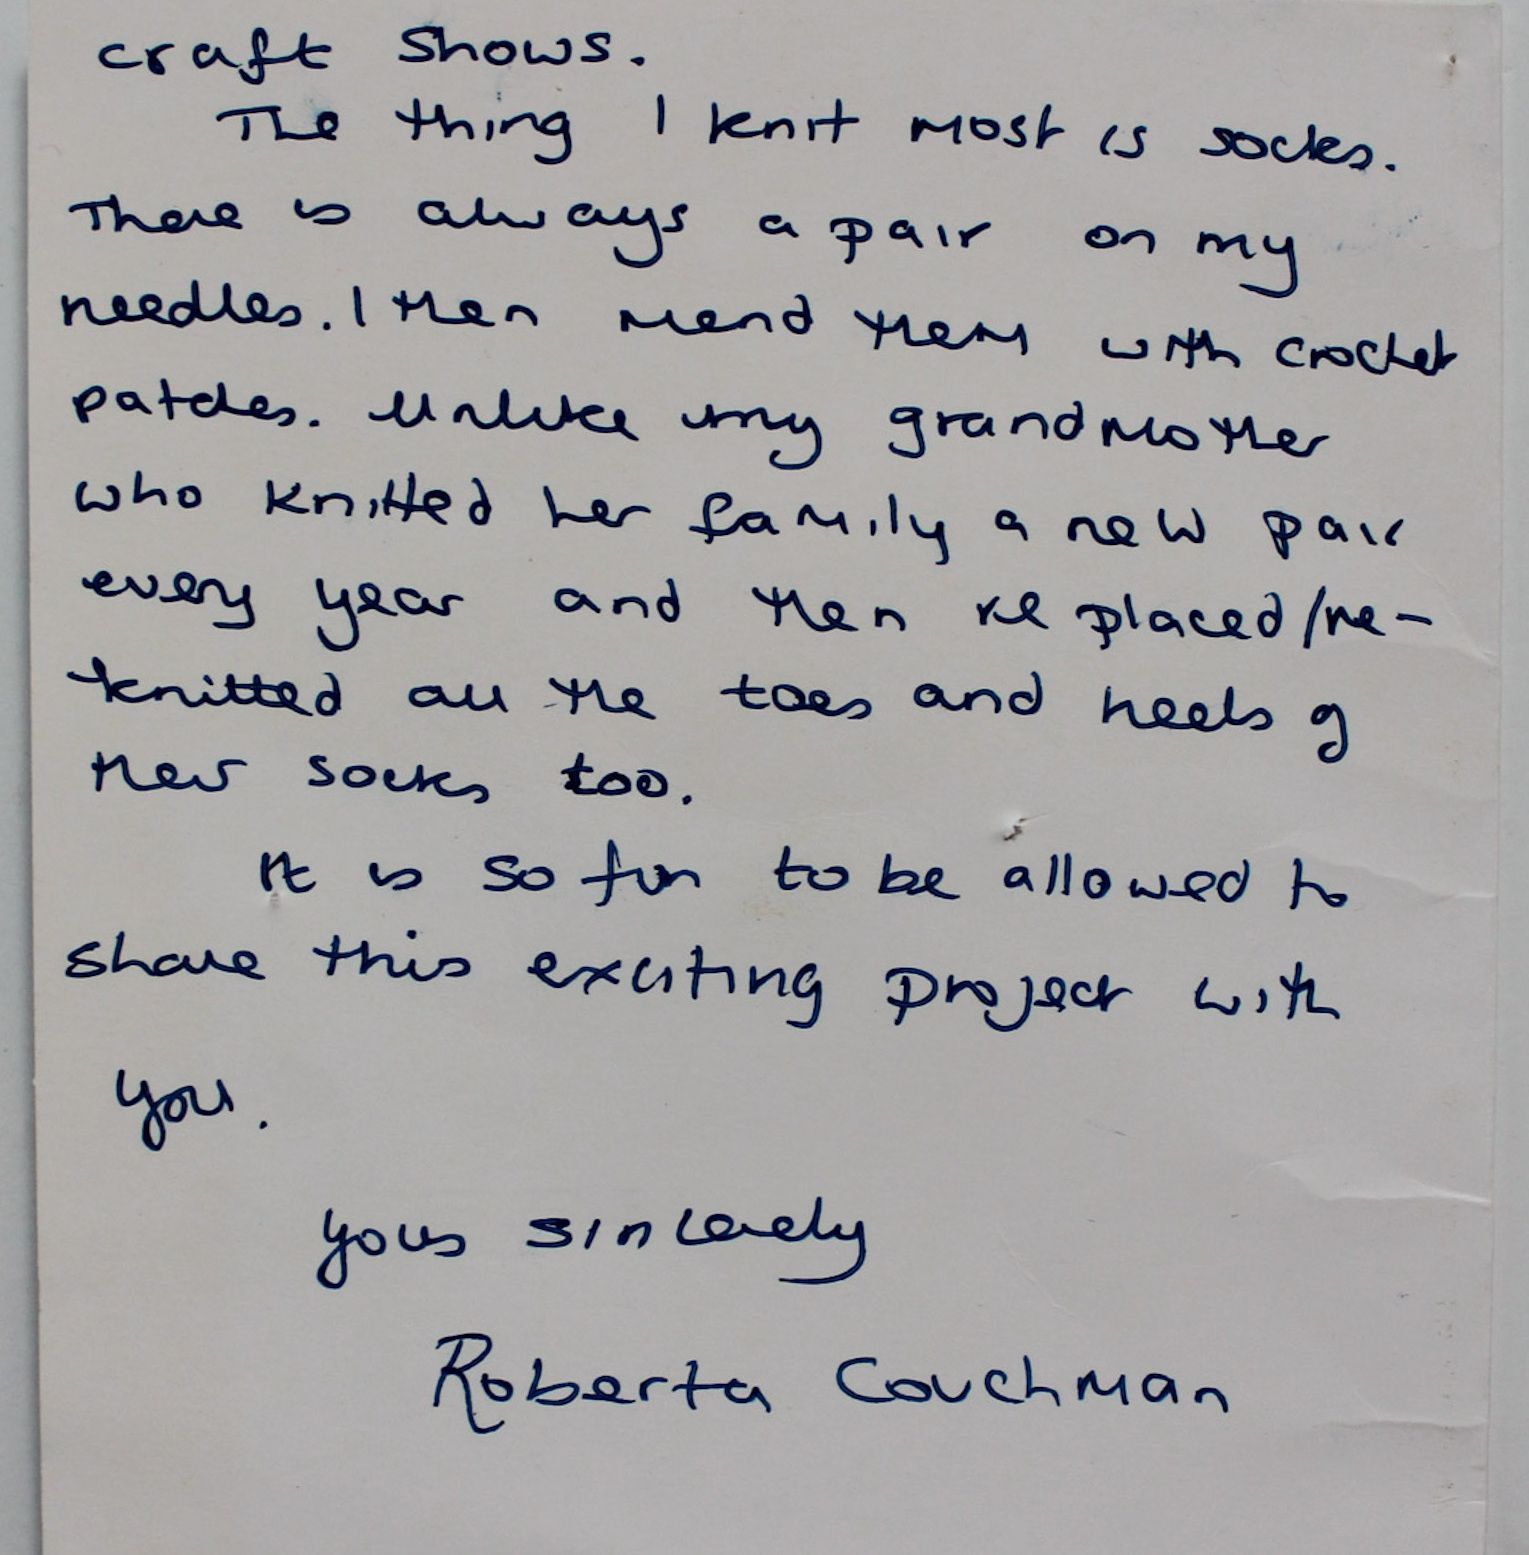 craft shows.
The thing I knit most is socks.
There is always a pair on my
needles. I then mend them with crochet
patches. Unlike my grandmother
who knitted her family a new pair
every year and then replaced/re-
knitted all the toes and heels of
their socks too.
It is so fun to be allowed to
share this exciting project with
you.
yours sincerely
Roberta Couchman